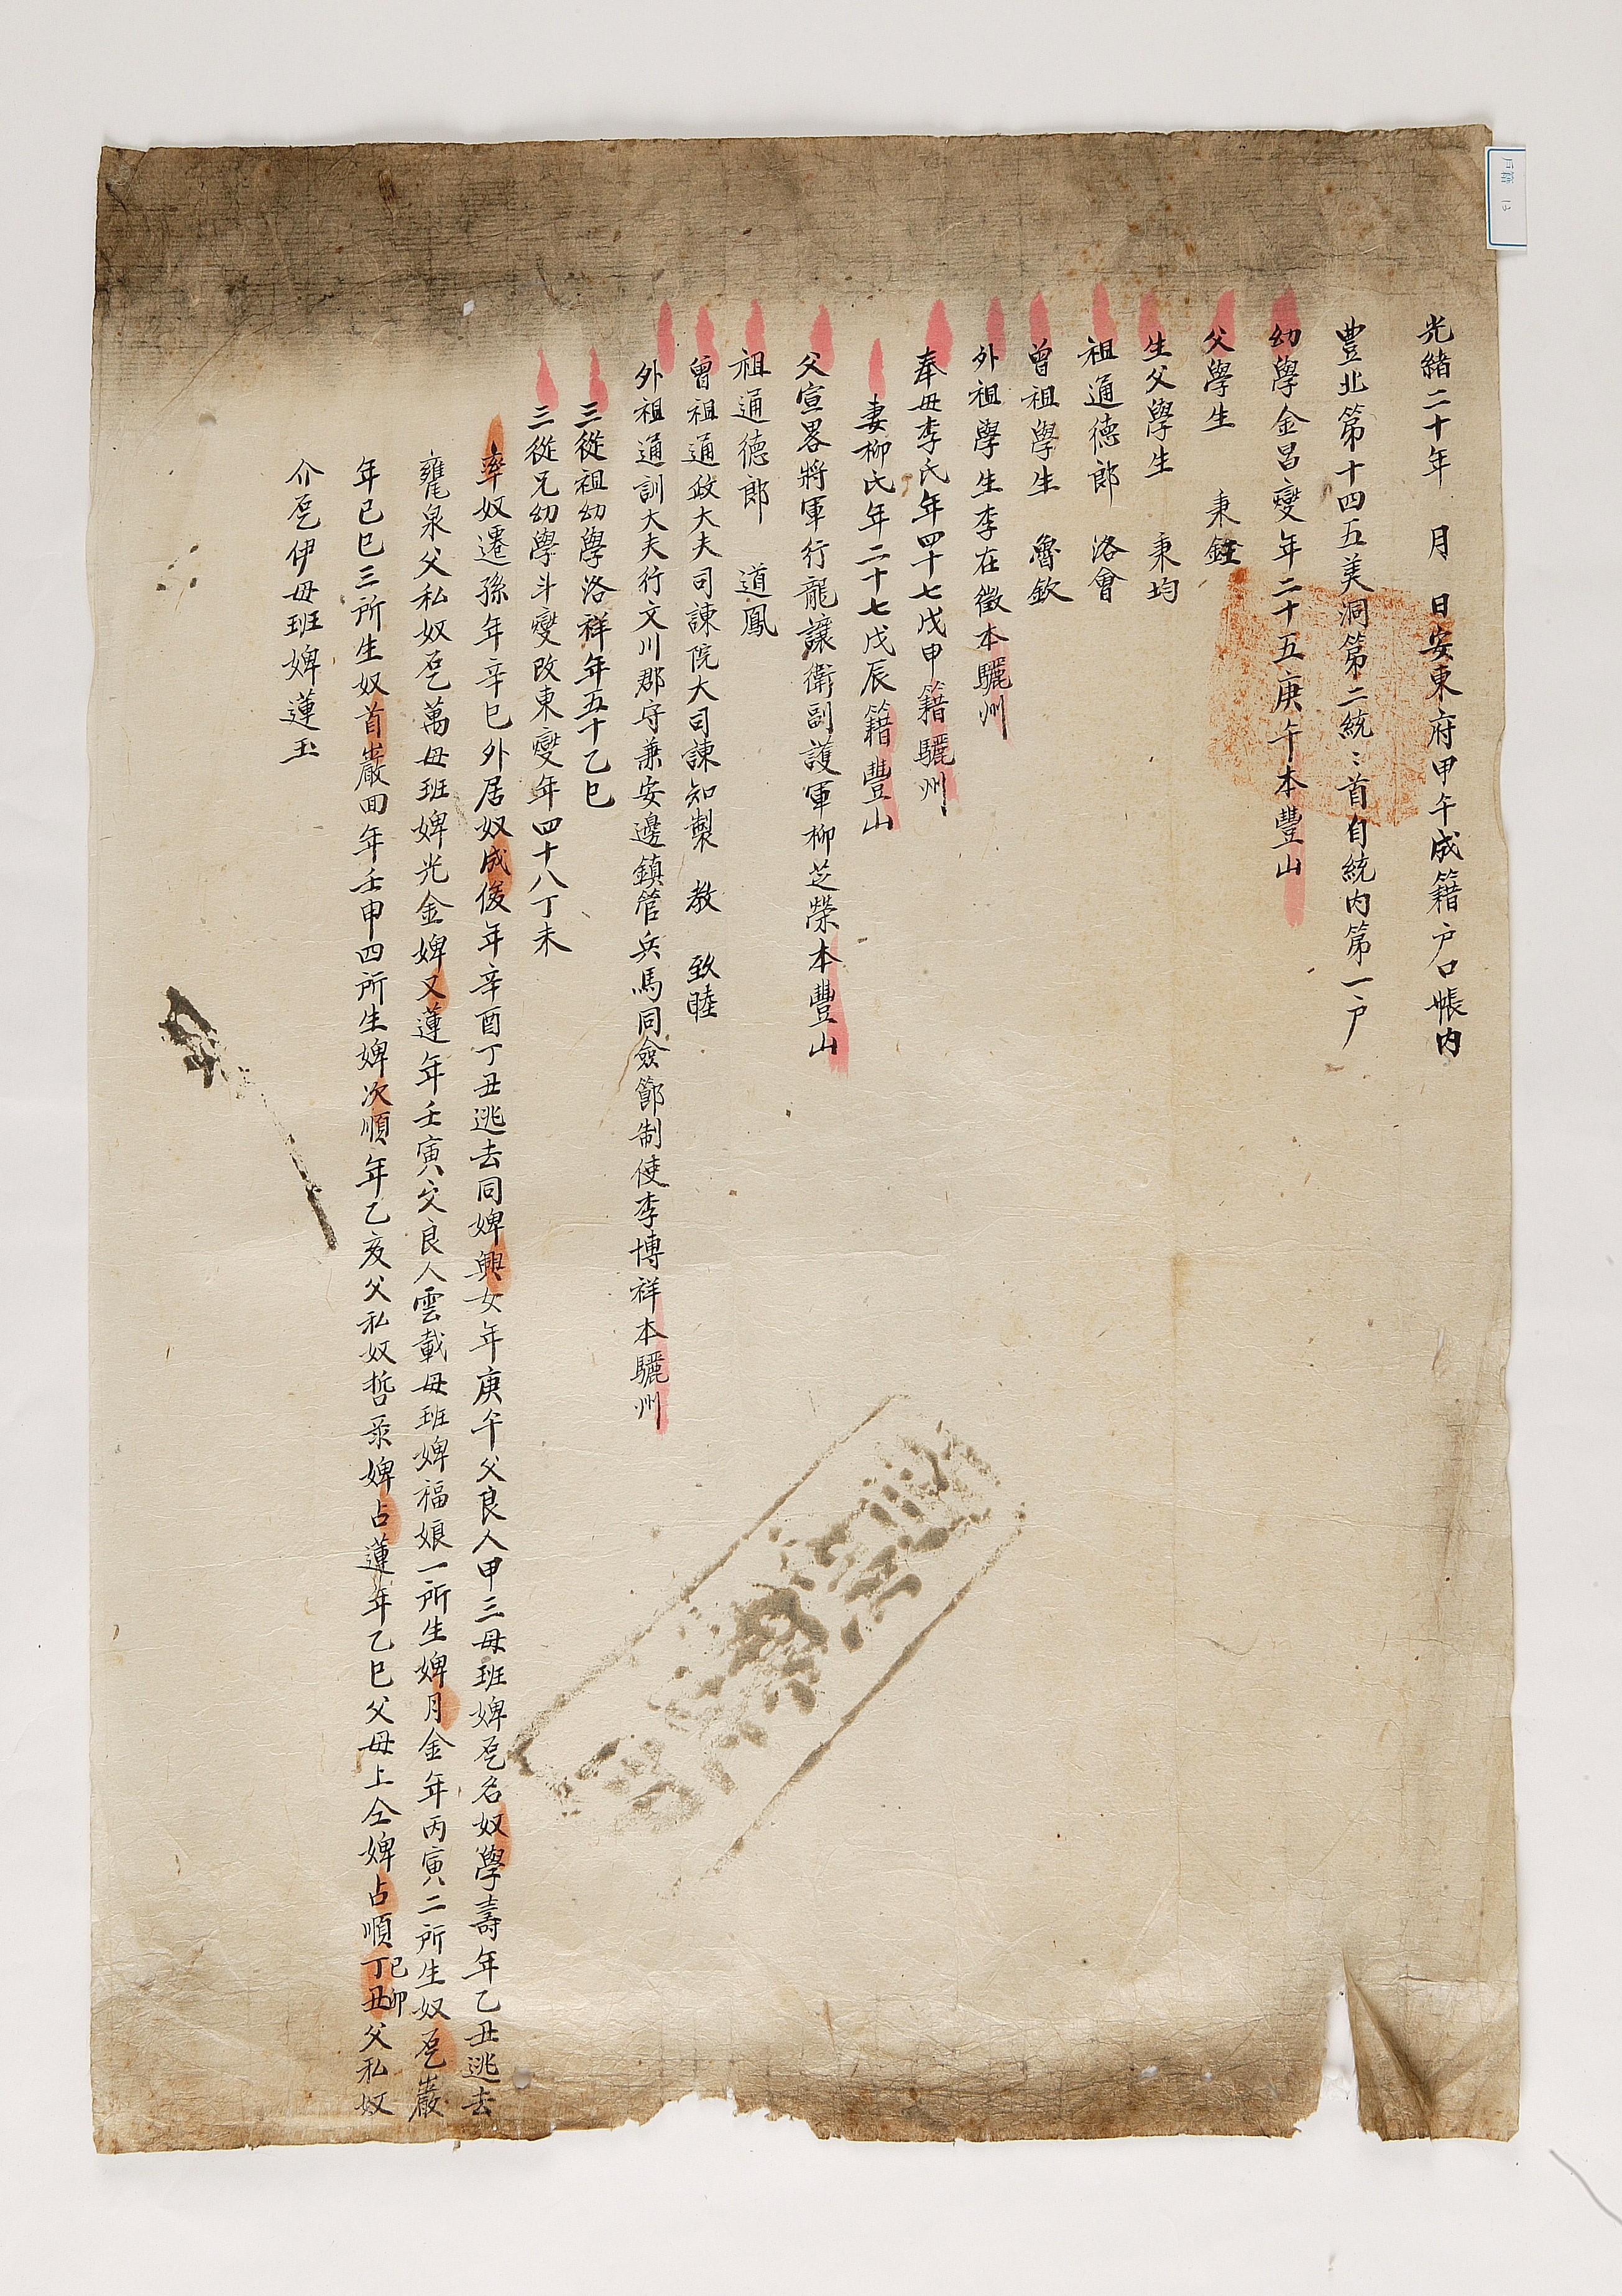 光緖二十年　月　日安東府甲午成籍户口帳内
豊北第十四五美洞第二統〻首自統内第一户
幼學金昌燮年二十五庚午本豐山
父學生　秉銓
生父學生　秉均
祖通德郎　洛會
曾祖學生　魯欽
外祖學生李在徵本驪州
奉母李氏年四十七戊申籍驪州
妻柳氏年二十七戊辰籍豐山
父宣畧將軍行龍讓衛副護軍柳芝榮本豐山
祖通德郎　道鳳
曾祖通政大夫司諫院大司諫知製　教　致睦
外祖通訓大夫行文川郡守兼安邊鎮管兵馬同僉節制使李博祥本驪州
三從祖幼學洛祥年五十乙巳
三從兄幼學斗燮改東燮年四十八丁未
率奴還孫年辛巳外居奴成俊年辛酉丁丑逃去同婢興女年庚午父良人甲三母班婢㖙名奴學壽年乙丑逃去
甕泉父私奴㖙萬母班婢光金婢又蓮年壬寅父良人雲載母班婢福娘一所生婢月金年丙寅二所生奴㖙巖
年己巳三所生奴首巖回年壬申四所生婢次順年乙亥父私奴哲彔婢占蓮年乙巳父母上仝婢占順丁丑己卯父私奴
介㖙伊母班婢蓮玉
戶籍 12